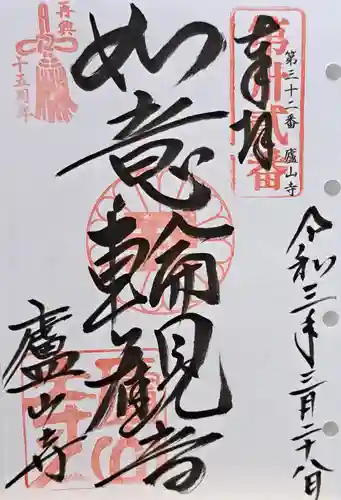 令和三年三月二十八日
奉拝
第三十二番 廬山寺
第卅弐番
如意輪観音
再興
十五周年
廬山寺